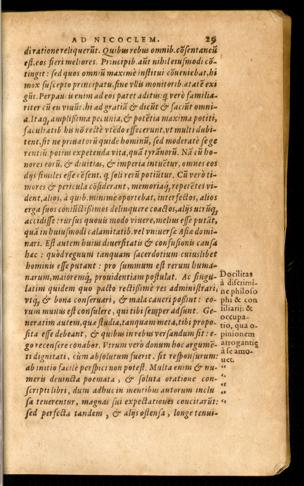 AD NICOCLEM. 29
di ratione reliquerūt. Quibus rebus omnib. cōsentaneū
est, eos fieri meliores. Principib. aūt nihil eiusmodi cō-
tingit: sed quos omniū maximè institui cōueniebat, hi
mox suscepto principatu, sine vllis monitorib. ætatē exi
gūt. Perpauci enim ad eos patet aditus: qui verò familia-
riter cū eis viuūt, hi ad gratiā & dicūt & faciūt omni-
a. Itaq; amplissima pecunia, & potētia maxima potiti,
facultatib. his nō rectè vtēdo effecerunt, vt multi dubi-
tent, sit ne priuatorū quide hominū, sed moderatè se ge
rentiū potior expetenda vita, quā tyrānorū. Nā cū ho-
nores eorū, & diuitias, & imperia intuētur, omnes eos
dijs similes esse cēsent, qui soli rerū potiūtur. Cū verò ti-
mores & pericula cōsiderant, memoriaq; repetētes vi-
dent, alios, à quib. minimè oportebat, interfectos, alios
erga suos coniūctissimos delinquere coactos, alijs utrūq;
accidisse: rursus quouis modo viuere, melius esse putāt,
quā in huiusmodi calamitatib. vel vniuersæ Asiæ domi-
nari. Est autem huius diuersitatis & confusionis causa
hæc: quòd regnum tanquam sacerdotium cuiuslibet
hominis esse putant: pro summum est rerum huma-
narum, maioremq; prouidentiam postulat. Ac singu-
latim quidem quo pacto rectissimè res administrari
vtiq; & bona conseruari, & mala caueri possint: eo-
rum munus est consulere, qui tibi semper adsunt. Ge-
neratim autem, quæ studia, tanquam meta, tibi propo-
sita esse debeant, & quibus in rebus versandum sit: e-
go recensere conabor. Vtrum verò donum hoc argumē-
ti dignitati, cùm absolutum fuerit, sit responsurum:
ab initio facilè perspici non potest. Multa enim & nu-
meris deuincta poemata, & soluta oratione con-
scripti libri, dum adhuc in mentibus autorum inclu
sa tenerentur, magnas sui expectationes concitarūt:
sed perfecta tandem, & alijs ostensa, longè tenui-
Docilitas
à discrimi-
ne philoso
phi & con
siliarij: &
occupa-
tio, qua o-
pinionem
arrogantię
à se amo-
uet.